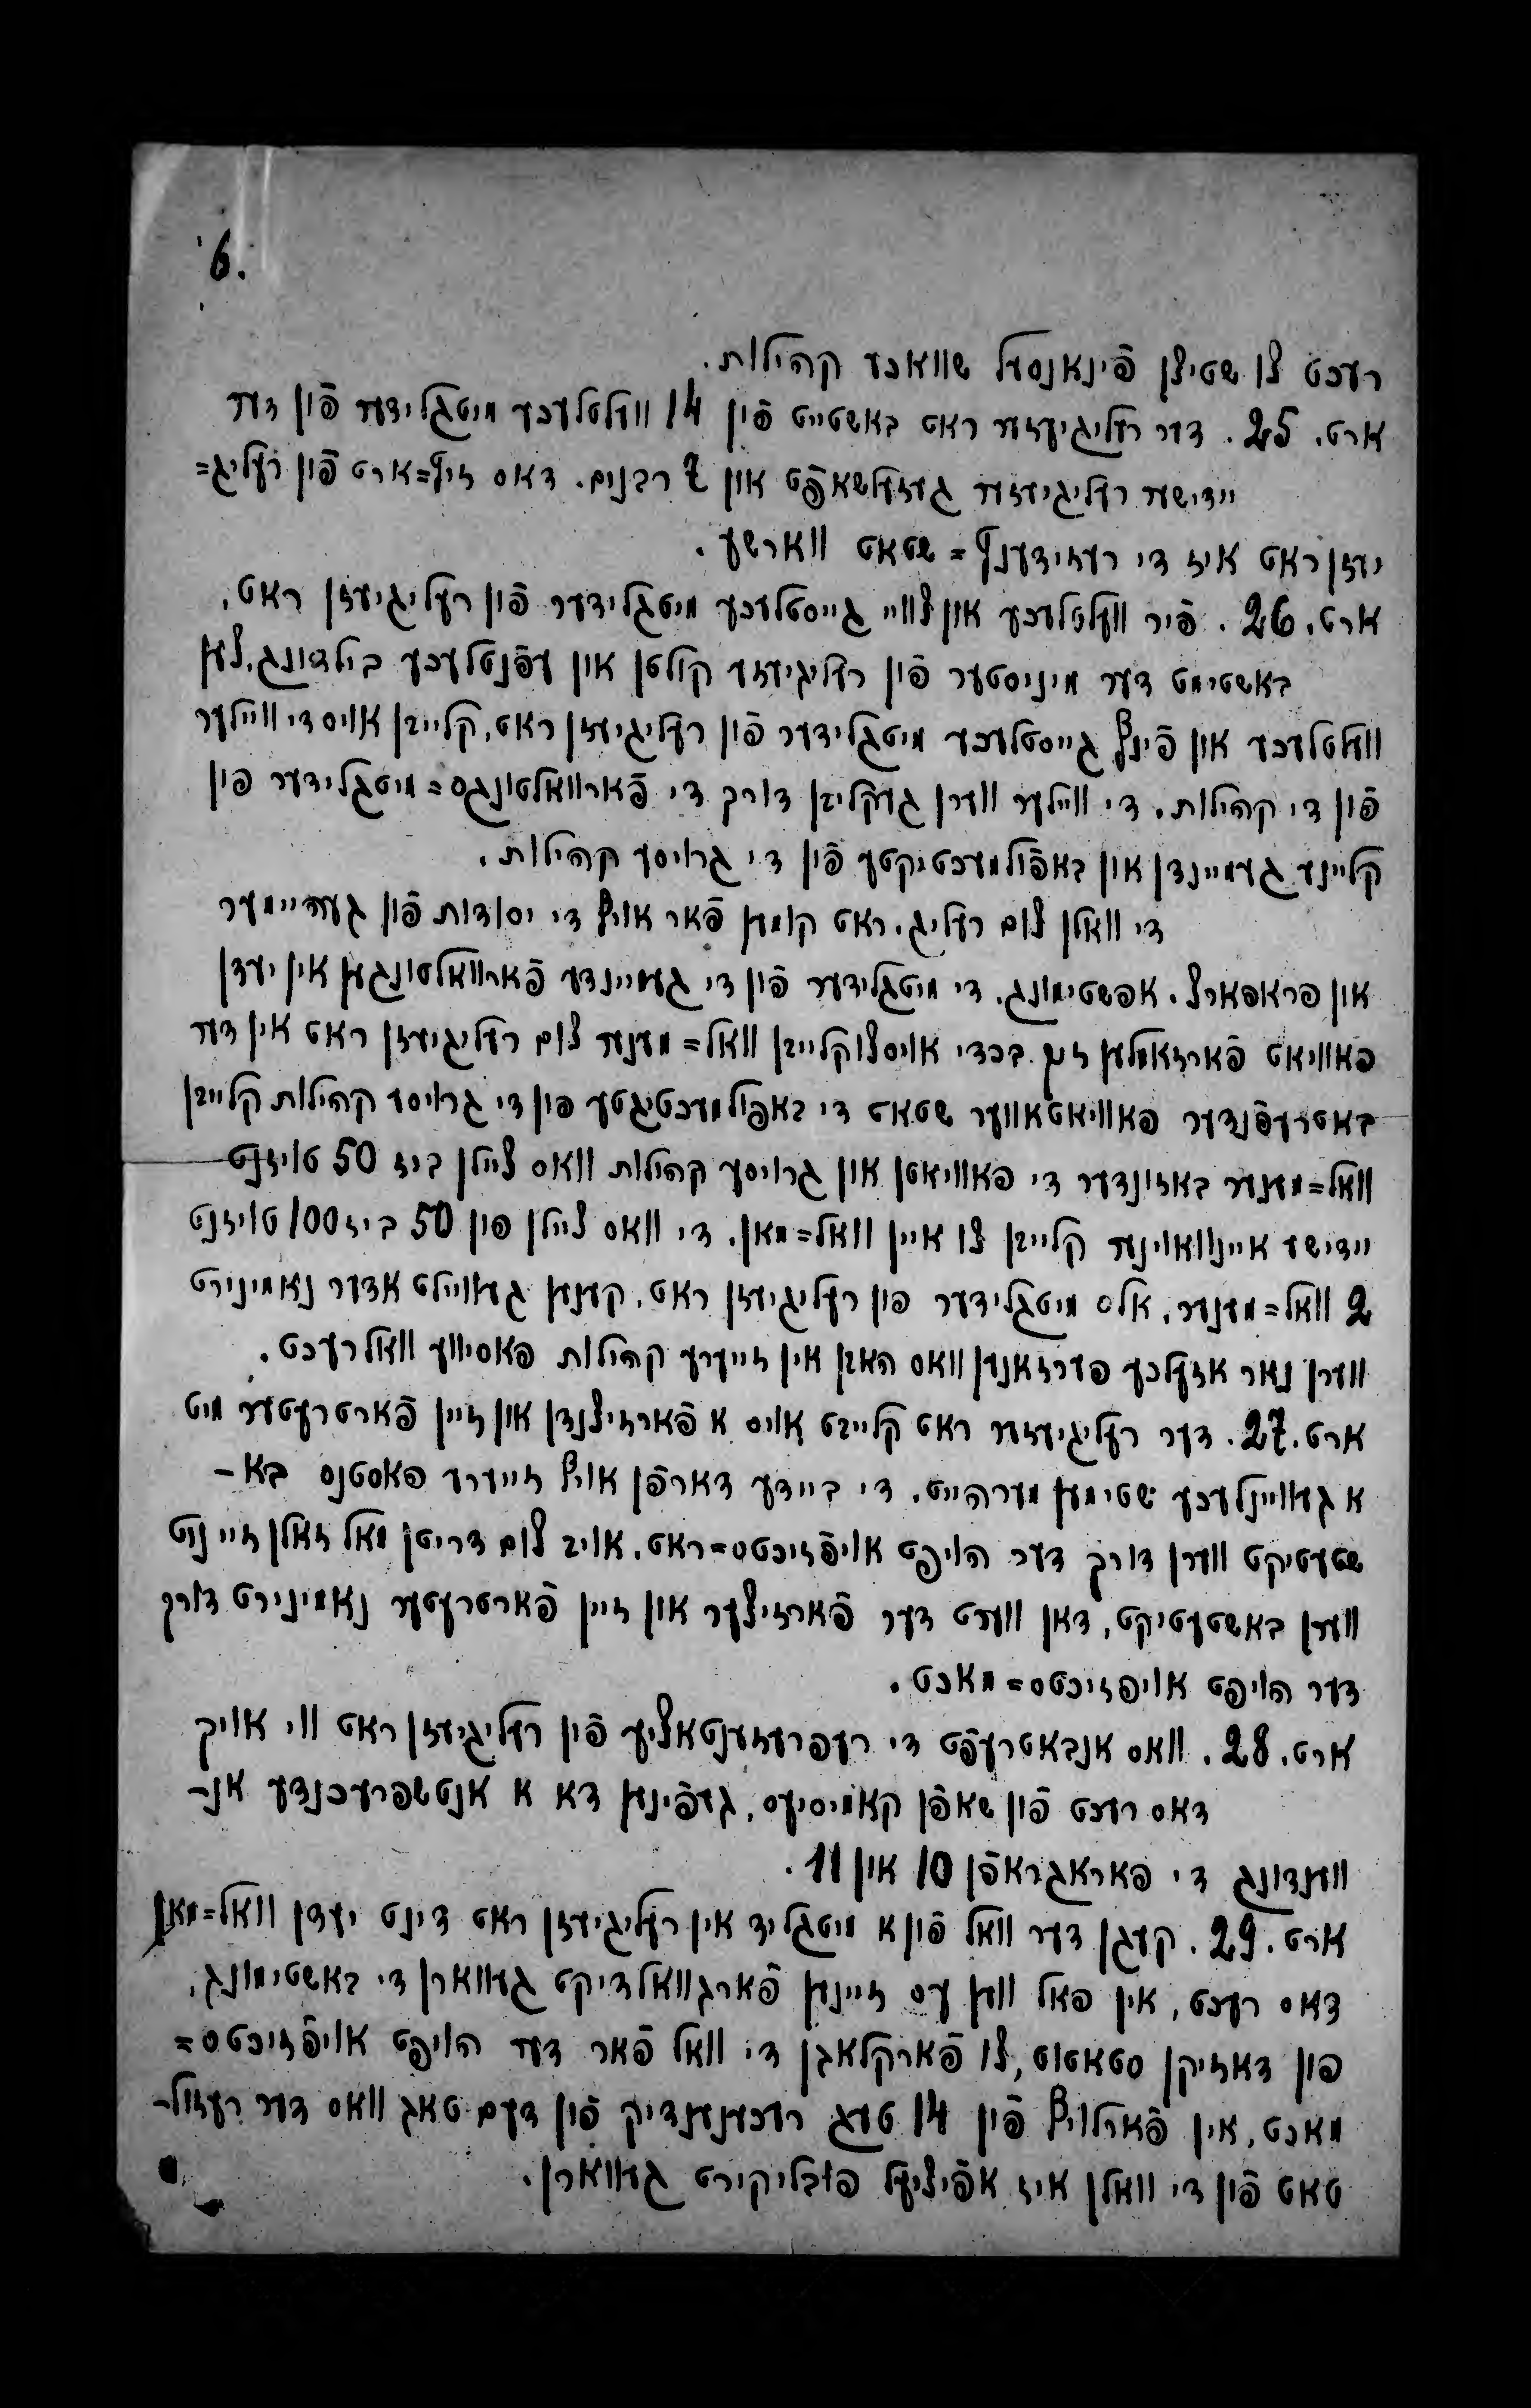 6.
רעכט צו שטיצן פֿינאַנסעל שוואכע קהילות.
ארט. 25. דער רעליגיעזער ראט באשטייט פֿון 14 וועלטלעכע מיטגלידער פֿון דער
יידישער רעליגיעזער געזעלשאפֿט און 7 רבנים. דאס זיץ=ארט פֿון רעליג=
יעזן ראט איז די רעזידענץ=שטאט ווארשע.
ארט. 26. פֿיר וועלטלעכע און צוויי גייסטלעכע מיטגלידער פֿון רעליגיעזן ראט,
באשטימט דער מיניסטער פֿון רעליגיעזע קולטן און עפֿנטלעכע בילדונג. צען
וועלטלעכע און פֿינף גייסטלעכע מיטגלידער פֿון רעליגיעזן ראט, קלייבן אויס די וויילער
פֿון די קהילות. די וויילער ווערן געקליבן דורך די פֿארוואלטונגס=מיטגלידער פון
קליינע געמיינדן און באפֿולמעכטיקטע פֿון די גרויסע קהילות.
די וואלן צום רעליג. ראט קומען פֿאר אויף די יסודות פֿון געהיימער
און פראפארצ. אפשטימונג. די מיטגלידער פֿון די געמיינדע פֿארוואלטונגען אין יעדן
פאוויאט פֿארזאמלען זיך בכדי אויסצוקלייבן וואל=מענער צום רעליגיעזן ראט אין דער
באטרעפֿנדער פאוויאטאווער שטאט די באפולמעכטיגטע פון די גרויסע קהילות קלייבן
וואל=מענער באזונדער די פאוויאטן און גרויסע קהילות וואס ציילן ביז 50 טויזנט
יידישע איינוואוינער קלייבן צו איין וואל=מאן. די וואס ציילן פון 50 ביז 100 טויזנט
2 וואל=מענער. אלס מיטגלידער פון רעליגיעזן ראט, קענען געוויילט אדער נאמינירט
ווערן נאר אזעלכע פערזאנען וואס האבן אין זייערע קהילות פאסיווע וואלרעכט.
ארט. 27. דער רעליגיעזער ראט קלייבט אויס א פֿארזיצנדן און זיין פֿארטרעטער מיט
א געוויינלעכע שטימען מערהייט. די ביידע דארפֿן אויף זייערע פאסטנס בא-
שטעטיקט ווערן דורך דער הויפט אויפֿזיכטס=ראט. אויב צום דריטן מאל זאלן זיי ניט
ווערן באשטעטיקט, דאן ווערט דער פֿארזיצער און זיין פֿארטרעטער נאמינירט דורך
דער הויפט אויפזיכטס=מאכט.
ארט. 28. וואס אנבאטרעפֿט די רעפרעזענטאציע פֿון רעליגיעזן ראט ווי אויך
דאס רעכט פֿון שאפֿן קאמיסיעס, געפֿינען דא א אנטשפרעכנדע אנ-
ווענדונג די פאראגראפֿן 10 און 11.
ארט. 29. קעגן דער וואל פֿון א מיטגליד אין רעליגיעזן ראט דינט יעדן וואל=מאן
דאס רעכט, אין פאל ווען עס זיינען פֿארגוואלדיקט געווארן די באשטימונג,
פון דאזיקן סטאטוט, צו פֿארקלאגן די וואל פֿאר דער הויפט אויפֿזיכטס=
מאכט, אין פֿארלויף פֿון 14 טעג רעכענענדיק פֿון דעם טאג וואס דער רעזול-
טאט פֿון די וואלן איז אפֿיציעל פובליקירט געווארן.